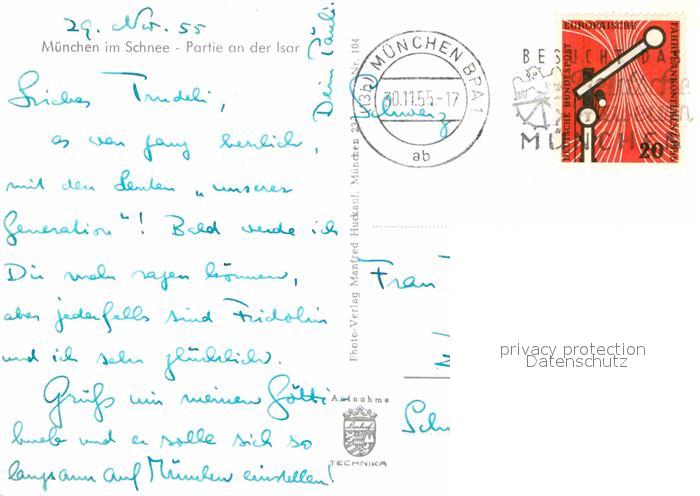 29. Nov. 55
München im Schnee - Partie an der Isar
Liebes Trudeli,
es war ganz herrlich,
mit den Leuten „unserer
Generation"! Bald werde ich
Dir mehr sagen können,
aber jedenfalls sind Fridolin
und ich sehr glücklich.
Grüß mir meinen Götti-
bueb und er solle sich so
langsam auf München einstellen!
Dein Päuli
Photo-Verlag Manfred Huckauf, München 22 Nr. 104
Aufnahme
TECHNIKA
MÜNCHEN BPA 1
30.11.55.-17
ab
Schweiz
BESUCHT DA
MÜNCHEN
EUROPÄISCHE
FAHRPLANKONFERENZ
DEUTSCHE BUNDESPOST
20
Frau
Sch
privacy protection
Datenschutz